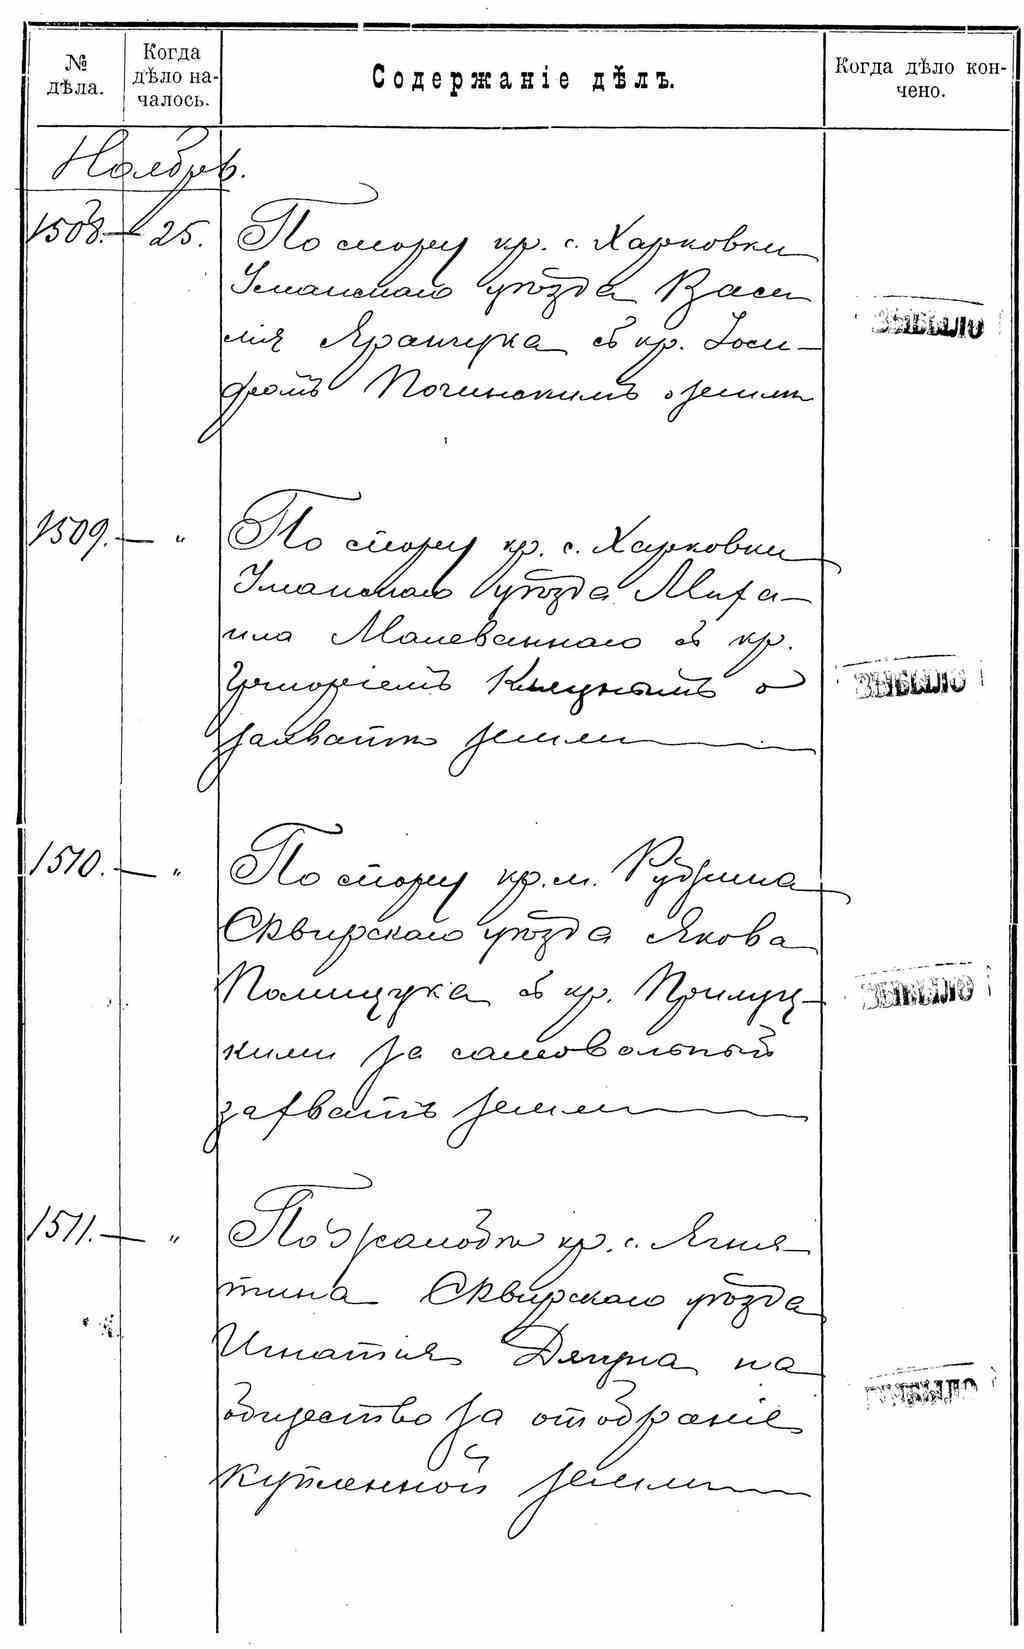 № дѣла.
Когда дѣло началось.
Содержаніе дѣлъ.
Когда дѣло кончено.
Ноябрь.
1508. — 25. По спору кр. с. Харковки
Уманскаго уѣзда Васи
лія Яранчука съ кр. Іоси-
фомъ Починскимъ о землѣ
ВЫБЫЛО
1509. — " По спору кр. с. Харковки
Уманскаго уѣзда Миха-
ила Малеваннаго съ кр.
Григоріемъ о
захватѣ земли
ВЫБЫЛО
1510. — " По спору кр. м. Ружина
Сквирскаго уѣзда Якова
Полищука съ кр. Прилуц-
кими за самовольный
захватъ земли
ВЫБЫЛО
1511. — " По жалобѣ кр. с. Ягня-
тина Сквирскаго уѣзда
Игнатія на
общество за отобраніе
купленной земли
ВЫБЫЛО